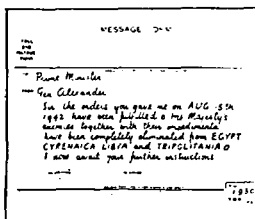 MESSAGE
Prime Minister
Gen Alexander
Sir the orders you gave me on AUG
1942 have been fulfilled
enemies together with their impedimenta
have been completely eliminated from EGYPT
CYRENAICA LIBYA and TRIPOLITANIA
I now await your further instructions